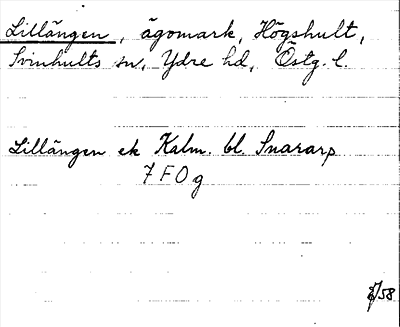 Lillängen, ägomark, Högshult,
Svinhults sn, Ydre hd, Östg. l.
Lillängen ek Kalm. bl. Snararp
7 F O g